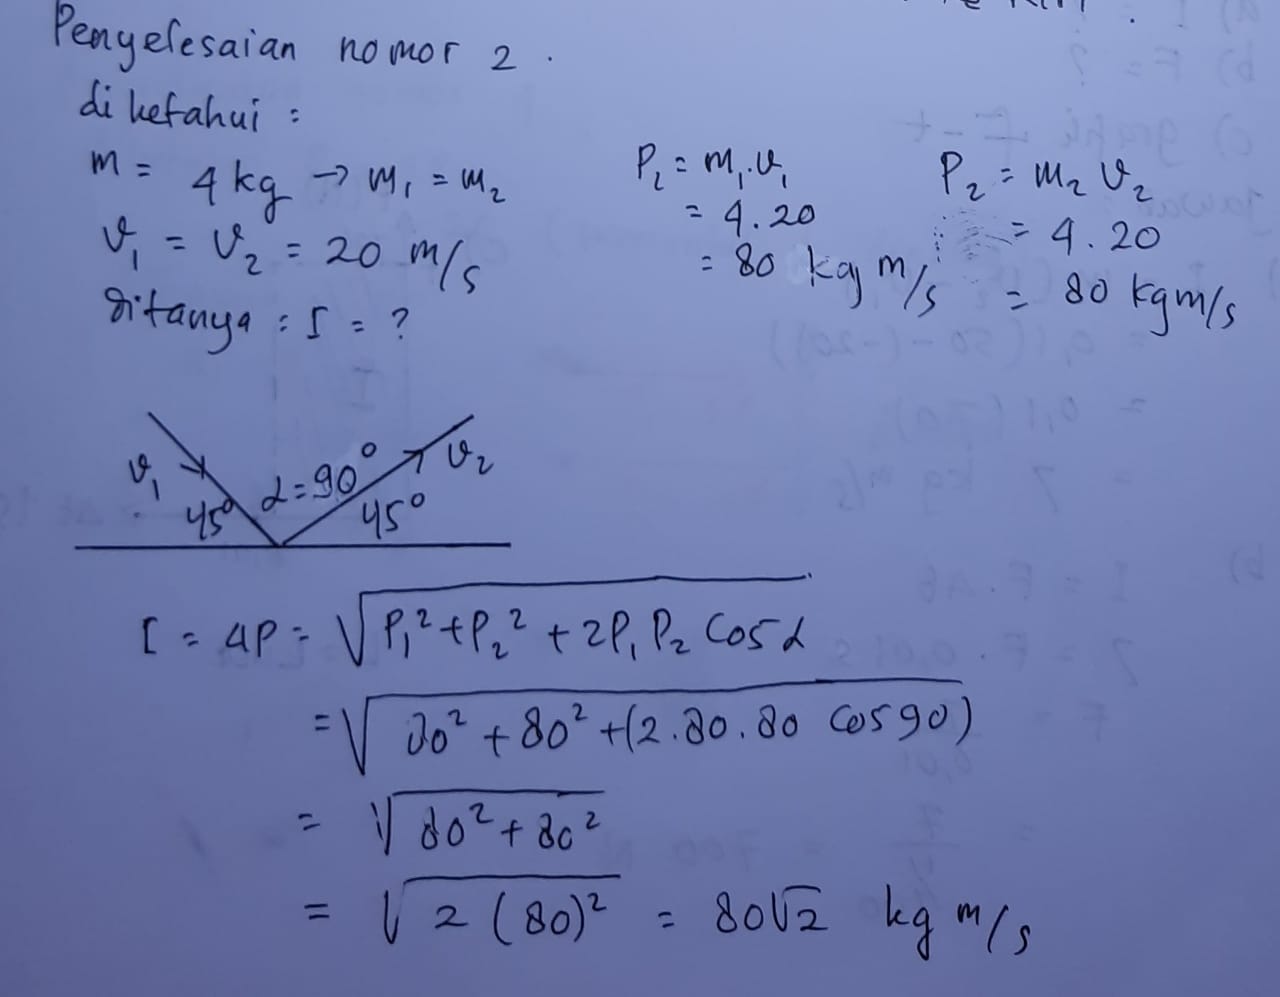 Penyelesaian nomor 2.
diketahui :
m = 4 kg → m₁ = m₂
v₁ = v₂ = 20 m/s
ditanya : I = ?
P₂ = m₁.v₁
= 4.20
= 80 kg m/s
P₂ = m₂ v₂
= 4.20
= 80 kgm/s
v₁
45°
α=90°
45°
v₂
I = ΔP = √P₁²+P₂² + 2P₁ P₂ Cos α
= √80² + 80² +(2.80.80 cos 90)
= √80² + 80²
= √2 (80)² = 80√2 kg m/s